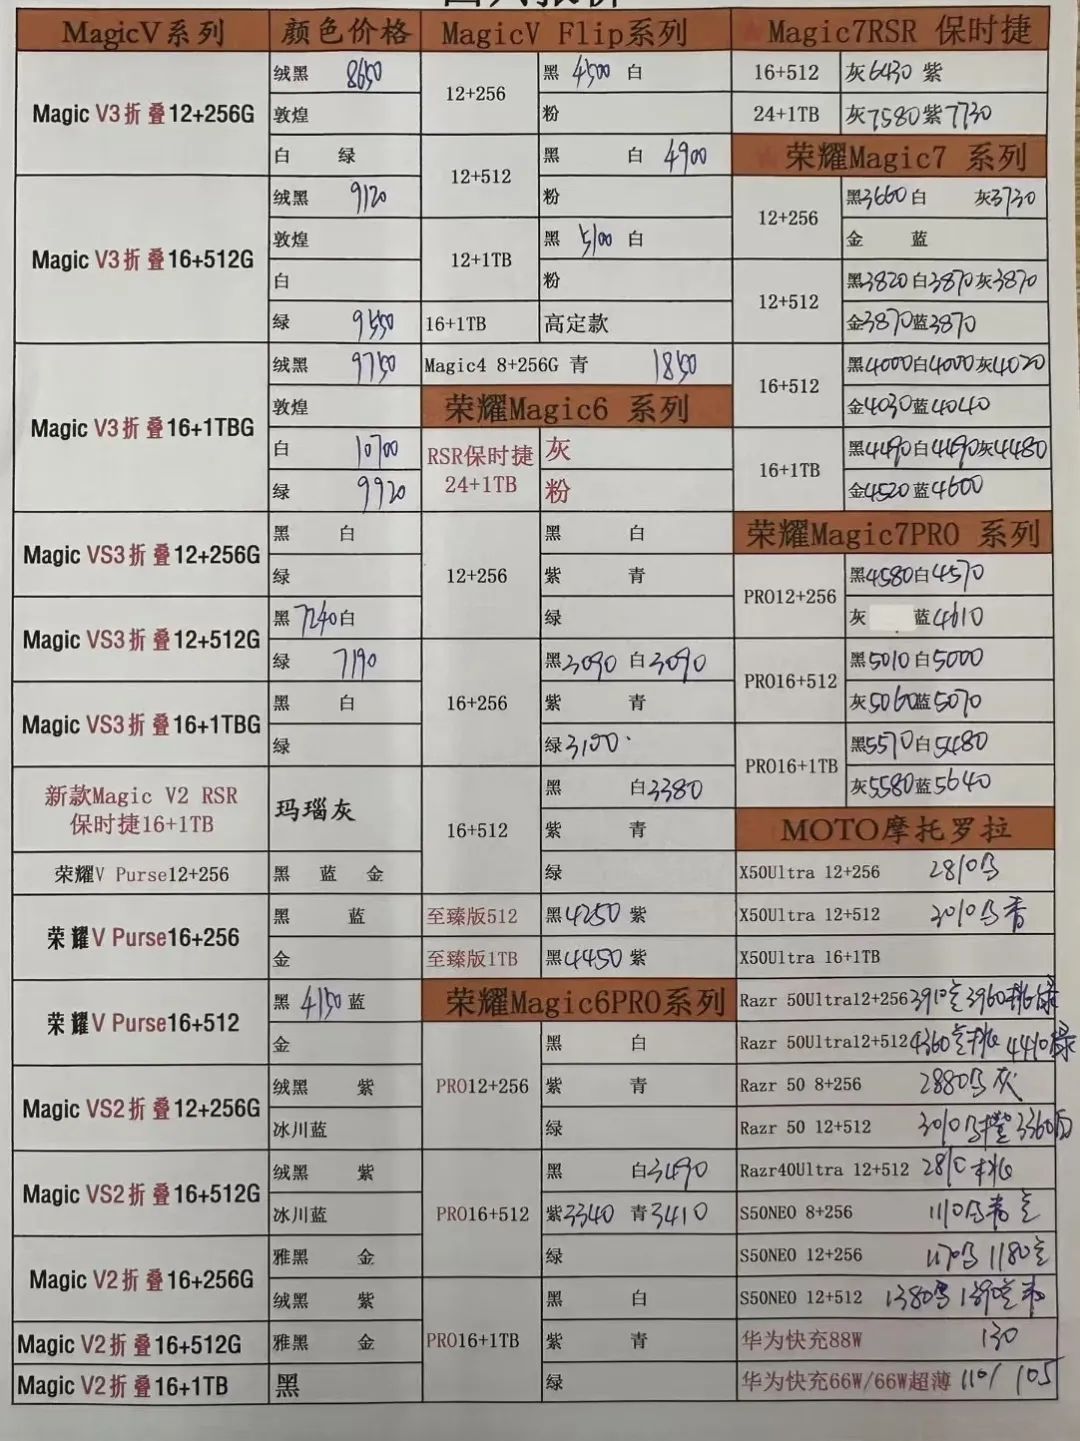 MagicV系列 颜色价格 MagicV Flip系列 Magic7RSR 保时捷
Magic V3折叠12+256G
绒黑 8650
敦煌
白 绿
Magic V3折叠16+512G
绒黑 9120
敦煌
白
绿 9550
Magic V3折叠16+1TBG
绒黑 9750
敦煌
白 10700
绿 9920
Magic VS3折叠12+256G
黑 白
绿
Magic VS3折叠12+512G
黑7240白
绿 7190
Magic VS3折叠16+1TBG
黑 白
绿
新款Magic V2 RSR
保时捷16+1TB
玛瑙灰
荣耀V Purse12+256
黑 蓝 金
荣耀V Purse16+256
黑 蓝
金
荣耀V Purse16+512
黑 4150 蓝
金
Magic VS2折叠12+256G
绒黑 紫
冰川蓝
Magic VS2折叠16+512G
绒黑 紫
冰川蓝
Magic V2折叠16+256G
雅黑 金
绒黑 紫
Magic V2折叠16+512G
雅黑 金
Magic V2折叠16+1TB
黑
12+256
黑 4500 白
粉
12+512
黑 白 4900
粉
12+1TB
黑 5100 白
粉
16+1TB 高定款
Magic4 8+256G 青 1850
荣耀Magic6 系列
RSR保时捷
24+1TB
灰
粉
12+256
黑 白
紫 青
绿
16+256
黑3090 白3090
紫 青
绿3100
16+512
黑 白3380
紫 青
绿
至臻版512 黑4250 紫
至臻版1TB 黑4450 紫
荣耀Magic6PRO系列
PRO12+256
黑 白
紫 青
绿
PRO16+512
黑 白3490
紫3340 青3410
绿
PRO16+1TB
黑 白
紫 青
绿
16+512 灰6430 紫
24+1TB 灰7580紫7730
荣耀Magic7 系列
12+256
黑3660白 灰3730
金 蓝
12+512
黑3820白3870灰3870
金3870蓝3870
16+512
黑4000白4000灰4020
金4030蓝4040
16+1TB
黑4490白4490灰4480
金4520蓝4600
荣耀Magic7PRO 系列
PRO12+256
黑4580白4570
灰 蓝4610
PRO16+512
黑5010白5000
灰5060蓝5070
PRO16+1TB
黑5570白5480
灰5580蓝5640
MOTO摩托罗拉
X50Ultra 12+256 2810
X50Ultra 12+512 3010
X50Ultra 16+1TB
Razr 50Ultra12+256 3910 3960桃绿
Razr 50Ultra12+512 4360 桃 4410绿
Razr 50 8+256 2880 灰
Razr 50 12+512 3010 橙 3360白
Razr40Ultra 12+512 桃
S50NEO 8+256 1110
S50NEO 12+256 1170 1180
S50NEO 12+512 1380 1390
华为快充88W 130
华为快充66W/66W超薄 110/ 105